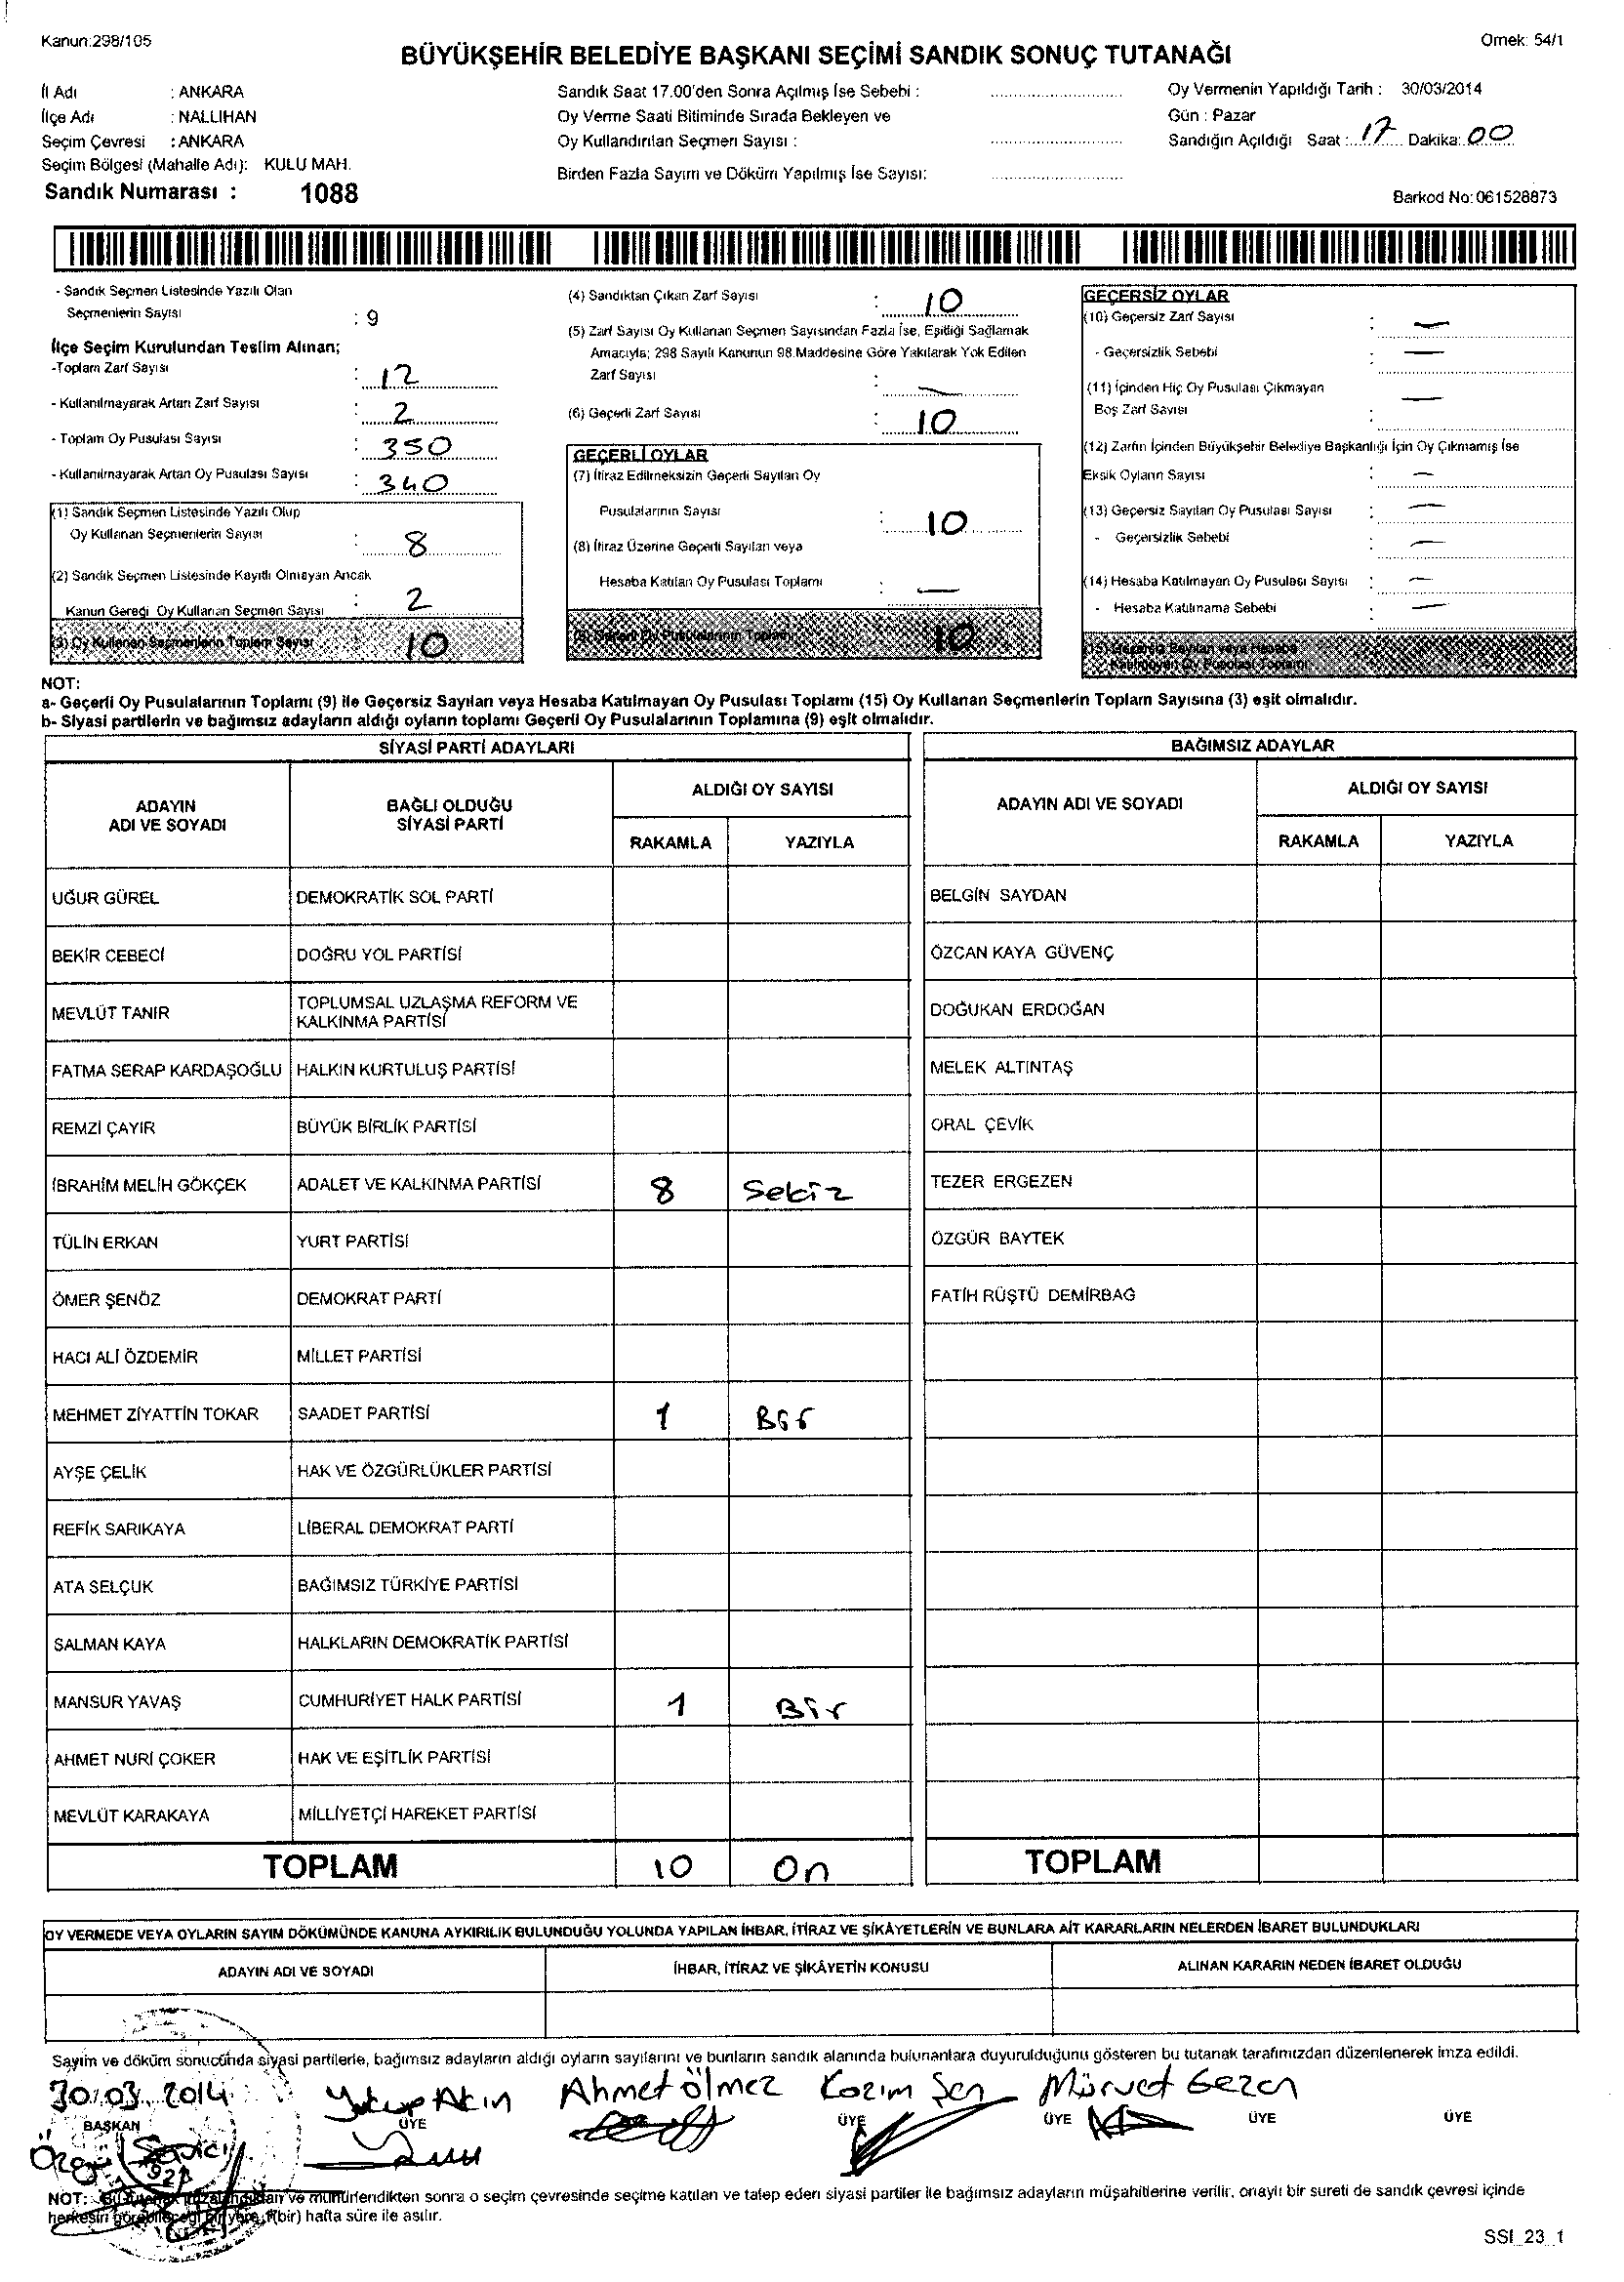 Kanun:298/105
Örnek: 54/1
BÜYÜKŞEHİR BELEDİYE BAŞKANI SEÇİMİ SANDIK SONUÇ TUTANAĞI
İl Adı : ANKARA
İlçe Adı : NALLIHAN
Seçim Çevresi : ANKARA
Seçim Bölgesi (Mahalle Adı): KULU MAH.
Sandık Numarası : 1088
Sandık Saat 17.00'den Sonra Açılmış İse Sebebi :
Oy Verme Saati Bitiminde Sırada Bekleyen ve
Oy Kullandırılan Seçmen Sayısı :
Birden Fazla Sayım ve Döküm Yapılmış İse Sayısı:
Oy Vermenin Yapıldığı Tarih : 30/03/2014
Gün : Pazar
Sandığın Açıldığı Saat : 17 Dakika: 00
Barkod No: 061528873
- Sandık Seçmen Listesinde Yazılı Olan
Seçmenlerin Sayısı : 9
İlçe Seçim Kurulundan Teslim Alınan;
-Toplam Zarf Sayısı : 12
- Kullanılmayarak Artan Zarf Sayısı : 2
- Toplam Oy Pusulası Sayısı : 350
- Kullanılmayarak Artan Oy Pusulası Sayısı : 340
(1) Sandık Seçmen Listesinde Yazılı Olup
Oy Kullanan Seçmenlerin Sayısı : 8
(2) Sandık Seçmen Listesinde Kayıtlı Olmayan Ancak
Kanun Gereği Oy Kullanan Seçmen Sayısı : 2
(3) Oy Kullanan Seçmenlerin Toplam Sayısı 10
(4) Sandıktan Çıkan Zarf Sayısı : 10
(5) Zarf Sayısı Oy Kullanan Seçmen Sayısından Fazla İse, Eşitliği Sağlamak
Amacıyla; 298 Sayılı Kanunun 98.Maddesine Göre Yakılarak Yok Edilen
Zarf Sayısı : —
(6) Geçerli Zarf Sayısı : 10
GEÇERLİ OYLAR
(7) İtiraz Edilmeksizin Geçerli Sayılan Oy
Pusulalarının Sayısı : 10
(8) İtiraz Üzerine Geçerli Sayılan veya
Hesaba Katılan Oy Pusulası Toplamı : —
(9) Geçerli Oy Pusulalarının Toplamı 10
GEÇERSİZ OYLAR
(10) Geçersiz Zarf Sayısı : —
- Geçersizlik Sebebi : —
(11) İçinden Hiç Oy Pusulası Çıkmayan
Boş Zarf Sayısı : —
(12) Zarfın İçinden Büyükşehir Belediye Başkanlığı İçin Oy Çıkmamış İse
Eksik Oyların Sayısı : —
(13) Geçersiz Sayılan Oy Pusulası Sayısı : —
- Geçersizlik Sebebi : —
(14) Hesaba Katılmayan Oy Pusulası Sayısı : —
- Hesaba Katılmama Sebebi : —
(15) Geçersiz Sayılan veya Hesaba
Katılmayan Oy Pusulası Toplamı
NOT:
a- Geçerli Oy Pusulalarının Toplamı (9) ile Geçersiz Sayılan veya Hesaba Katılmayan Oy Pusulası Toplamı (15) Oy Kullanan Seçmenlerin Toplam Sayısına (3) eşit olmalıdır.
b- Siyasi partilerin ve bağımsız adayların aldığı oyların toplamı Geçerli Oy Pusulalarının Toplamına (9) eşit olmalıdır.
SİYASİ PARTİ ADAYLARI
ADAYIN ADI VE SOYADI BAĞLI OLDUĞU SİYASİ PARTİ ALDIĞI OY SAYISI
RAKAMLA YAZIYLA
UĞUR GÜREL DEMOKRATİK SOL PARTİ
BEKİR CEBECİ DOĞRU YOL PARTİSİ
MEVLÜT TANIR TOPLUMSAL UZLAŞMA REFORM VE
KALKINMA PARTİSİ
FATMA SERAP KARDAŞOĞLU HALKIN KURTULUŞ PARTİSİ
REMZİ ÇAYIR BÜYÜK BİRLİK PARTİSİ
İBRAHİM MELİH GÖKÇEK ADALET VE KALKINMA PARTİSİ 8 Sekiz
TÜLİN ERKAN YURT PARTİSİ
ÖMER ŞENÖZ DEMOKRAT PARTİ
HACI ALİ ÖZDEMİR MİLLET PARTİSİ
MEHMET ZİYATTİN TOKAR SAADET PARTİSİ 1 Bir
AYŞE ÇELİK HAK VE ÖZGÜRLÜKLER PARTİSİ
REFİK SARIKAYA LİBERAL DEMOKRAT PARTİ
ATA SELÇUK BAĞIMSIZ TÜRKİYE PARTİSİ
SALMAN KAYA HALKLARIN DEMOKRATİK PARTİSİ
MANSUR YAVAŞ CUMHURİYET HALK PARTİSİ 1 Bir
AHMET NURİ ÇOKER HAK VE EŞİTLİK PARTİSİ
MEVLÜT KARAKAYA MİLLİYETÇİ HAREKET PARTİSİ
TOPLAM 10 On
BAĞIMSIZ ADAYLAR
ADAYIN ADI VE SOYADI ALDIĞI OY SAYISI
RAKAMLA YAZIYLA
BELGİN SAYDAN
ÖZCAN KAYA GÜVENÇ
DOĞUKAN ERDOĞAN
MELEK ALTINTAŞ
ORAL ÇEVİK
TEZER ERGEZEN
ÖZGÜR BAYTEK
FATİH RÜŞTÜ DEMİRBAĞ
TOPLAM
OY VERMEDE VEYA OYLARIN SAYIM DÖKÜMÜNDE KANUNA AYKIRILIK BULUNDUĞU YOLUNDA YAPILAN İHBAR, İTİRAZ VE ŞİKÂYETLERİN VE BUNLARA AİT KARARLARIN NELERDEN İBARET BULUNDUKLARI
ADAYIN ADI VE SOYADI İHBAR, İTİRAZ VE ŞİKÂYETİN KONUSU ALINAN KARARIN NEDEN İBARET OLDUĞU
Sayım ve döküm sonucunda siyasi partilerle, bağımsız adayların aldığı oyların sayılarını ve bunların sandık alanında bulunanlara duyurulduğunu gösteren bu tutanak tarafımızdan düzenlenerek imza edildi.
30.03.2014 Yakup Akın Ahmet Ölmez Kazım Şen Mürvet Gezen
BAŞKAN ÜYE ÜYE ÜYE ÜYE ÜYE
NOT: Bu tutanak imzalandıktan ve mühürlendikten sonra o seçim çevresinde seçime katılan ve talep eden siyasi partiler ile bağımsız adayların müşahitlerine verilir, onaylı bir sureti de sandık çevresi içinde
herkesin görebileceği bir yere 1(bir) hafta süre ile asılır.
SSI_23_1